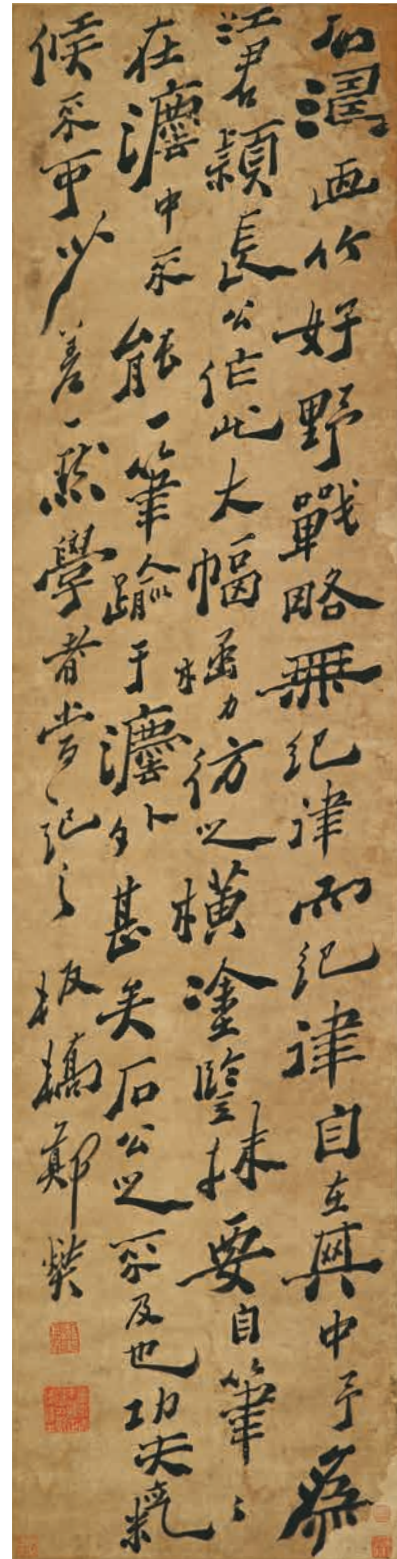 石濤画竹好野戰略無紀律而紀律自在其中予為
江君穎長公作此大幅極力彷之橫塗豎抹要自筆〻
在灋中不能一筆踰于灋外甚矣石公之不可及也功夫氣
候不可少差一點學者當記之 板橋鄭燮